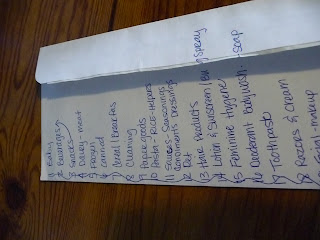 1) Baby
2 Beverages
3 Snacks
4 Dairy - meat
5 Frozen
6 canned
7 Cereal | Breakfas
8 Cleaning
9 Paper goods
10 Pasta - Rice - Helpers
11 Sauces - Seasonings
Condiments Dressings
12 Pet
13 Hair Products
14 Lotion & Sunscreen Bug Spray
15 Feminine Hygene
16 Deoderant Bodywash - soap
17 Toothpaste
18 Razors & Cream
Facial - makeup